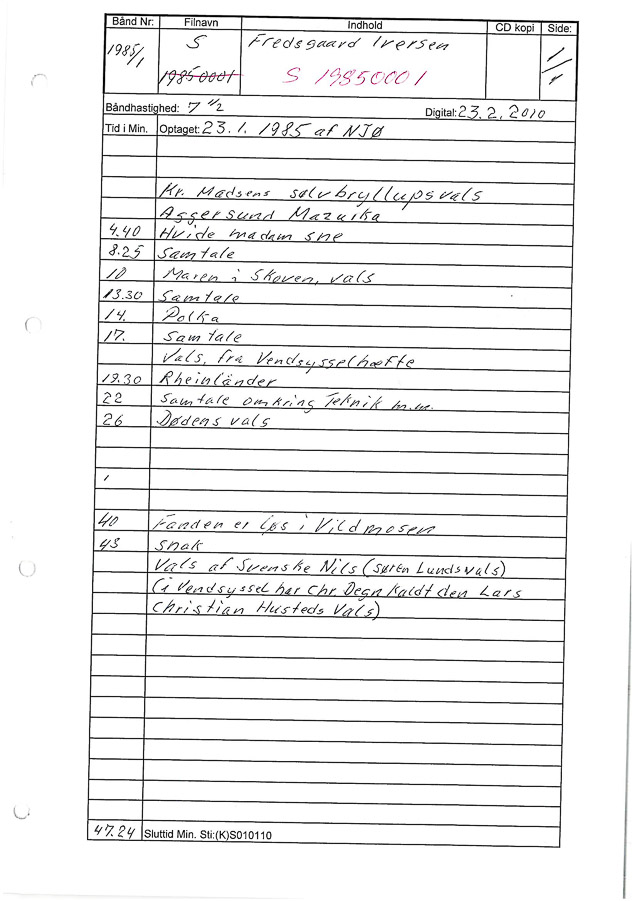 Bånd Nr: Filnavn Indhold CD kopi Side:
1985/1 S Fredsgaard Iversen 1/1
19850001 S 19850001
Båndhastighed: 7 1/2 Digital: 23.2.2010
Tid i Min. Optaget: 23.1.1985 af NJØ
Kr. Madsens sølvbryllupsvals
Aggersund Mazurka
4.40 Hvide madam sne
8.25 Samtale
10 Maren i Skoven, vals
13.30 Samtale
14. Polka
17. Samtale
Vals, fra Vendsysselhæfte
19.30 Rheinländer
22 Samtale omkring Teknik m.m.
26 Dødens vals
40 Fanden er løs i Vildmosen
43 Snak
Vals af Svenske Nils (Søren Lunds vals)
(i Vendsyssel har Chr Degn kaldt den Lars
Christian Husteds Vals)
47.24 Sluttid Min. Sti:(K)S010110